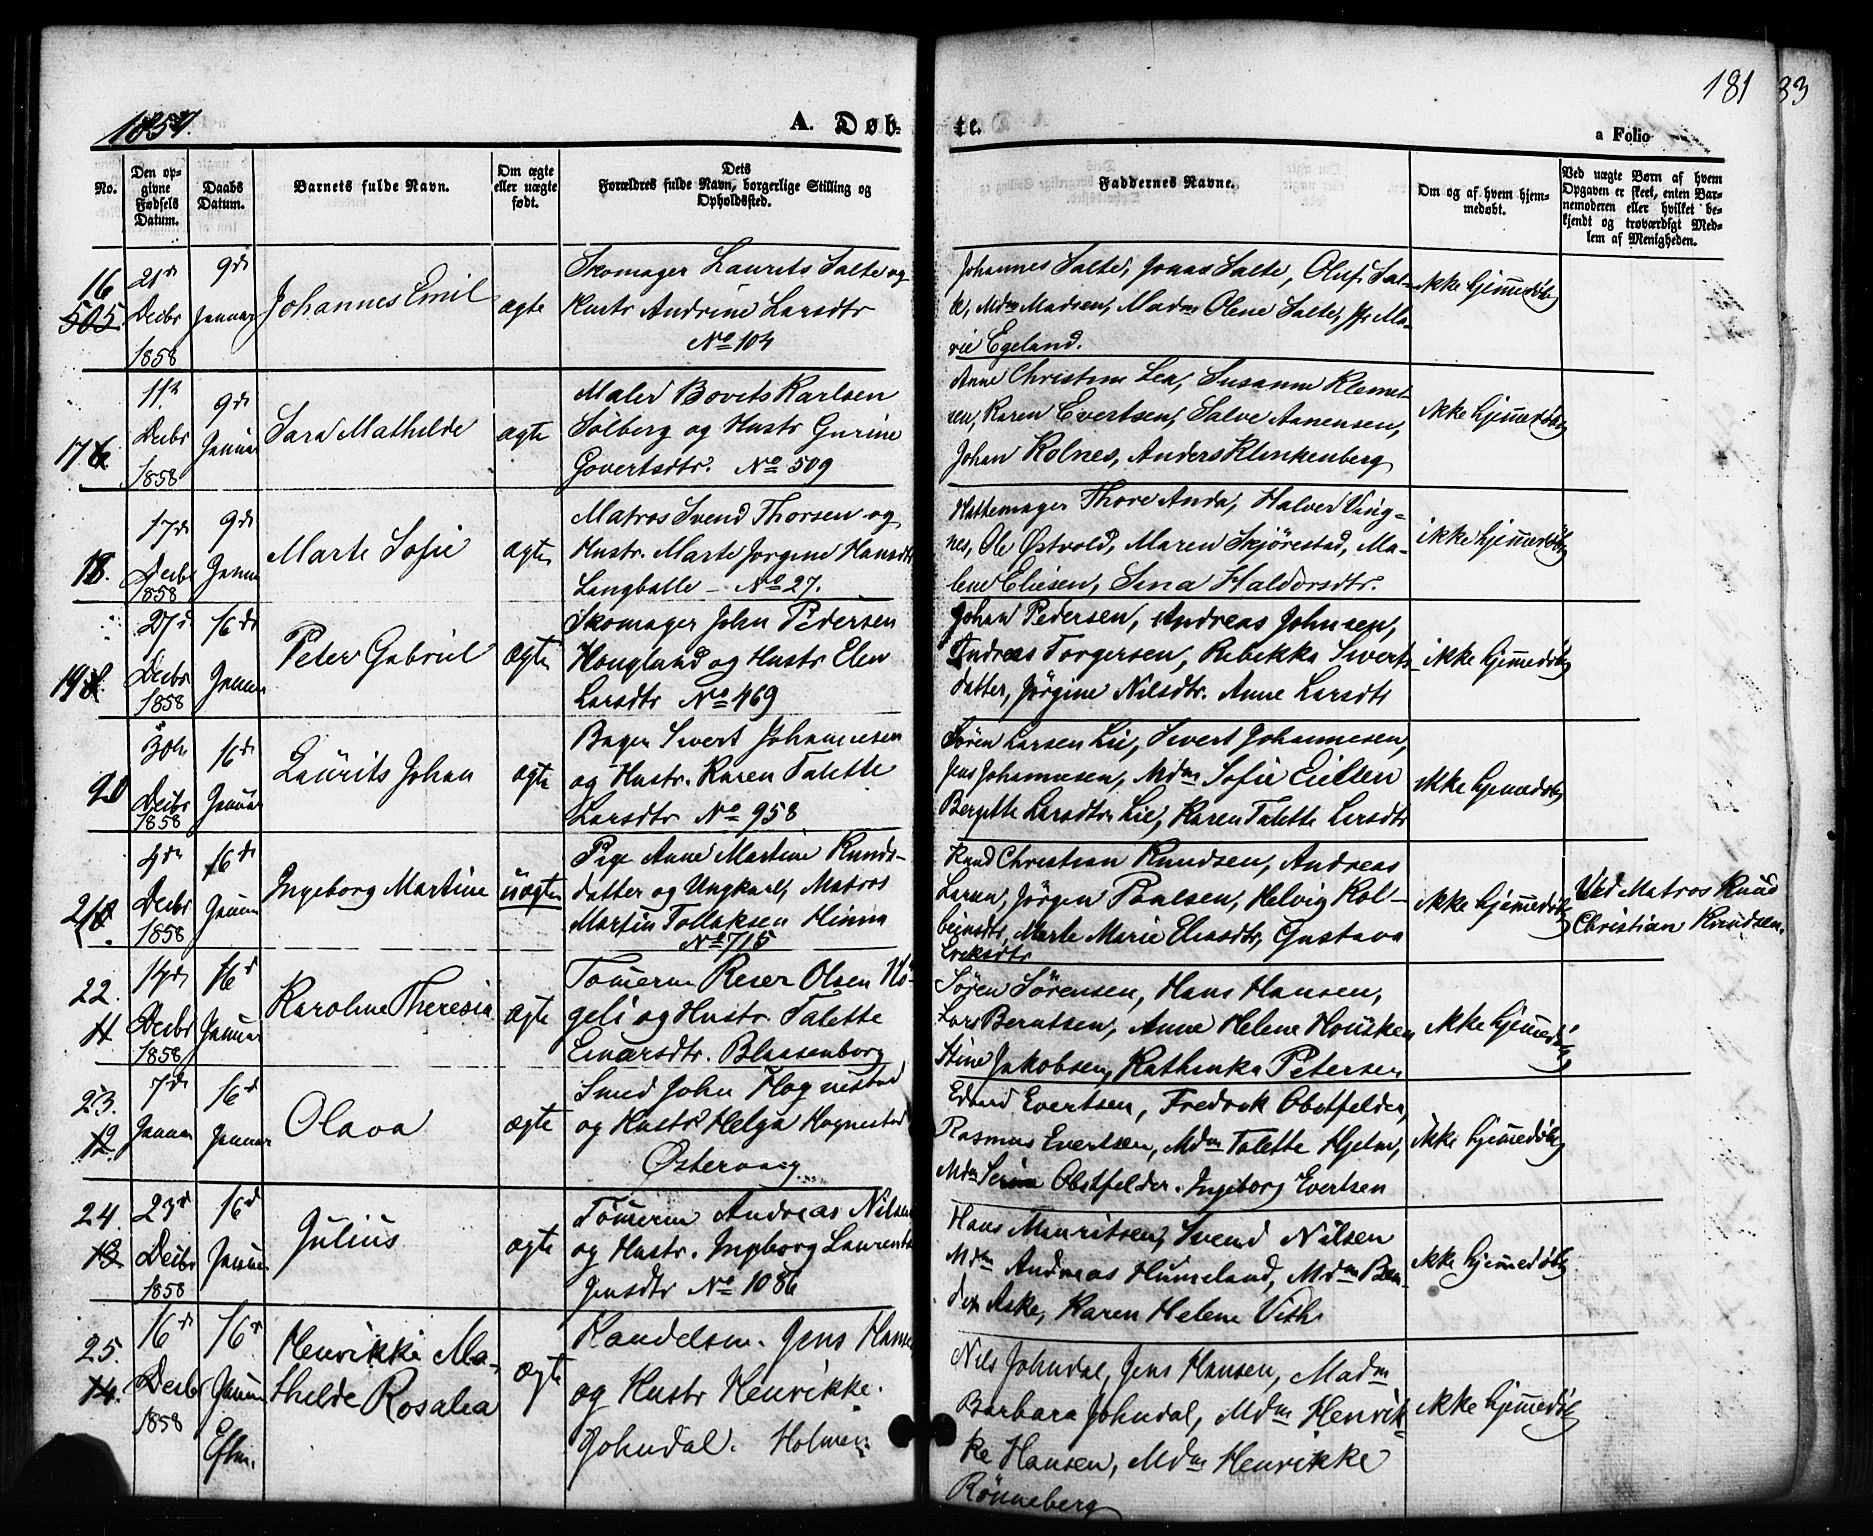 181 33
1859.
A. Døb-
te.
a Folio
No.
Den op-
givne
Fødsels
Datum.
Daabs
Datum.
Barnets fulde Navn.
Om ægte
eller uægte
født.
Dets
Forældres fulde Navn, borgerlige Stilling og
Opholdssted.
Faddernes Navne.
Om og af hvem hjem-
medøbt.
Ved uægte Børn af hvem
Opgaven er skeet, enten Bar-
nemoderen eller hvilket be-
kjendt og troværdigt Med-
lem af Menigheden.
16
505
21de
Decbr
1858
9de
Januar
Johannes Emil
ægte
Skomager Laurits Salte og
Hustr Andrine Larsdtr
No 104
Johannes Salte, Jonas Salte, Oluf Sal-
te, Mdm Madsen, Madm Olene Salte, Pig Ma-
rie Egeland.
ikke hjemmedøbt
17
11te
Decbr
1858
9de
Januar
Sara Mathilde
ægte
Maler Bovits Karlsen
Solberg og Hustr Gurine
Govertsdtr. No 509
Anne Christine Lea, Susanne Klemet-
sen, Karen Evertsen, Salve Aanensen,
Johan Kolnes, Anders Klinkenberg
ikke hjemmedøbt
18.
17de
Decbr
1858
9de
Januar
Marte Sofie
ægte
Matros Svend Thorsen og
Hustr. Marte Jorgine Hansdtr
Langballe - No 27.
Hattemager Thore Anda, Halvor Ving-
nes, Ole Østvold, Maren Skjørestad, Ma-
lene Eliesen, Sina Haldorsdtr.
ikke hjemmedøbt
19
27de
Decbr
1858
16de
Januar
Peter Gabriel
ægte
Skomager John Pedersen
Hougland og Hustr Elen
Larsdtr No 469
Johan Pedersen, Andreas Johnsen,
Andreas Torgersen, Rebekka Sivert-
datter, Jörgine Nilsdtr. Anne Larsdtr
ikke hjemmedøbt
20
30te
Decbr
1858
16de
Januar
Laurits Johan
ægte
Bager Sivert Johannesen
og Hustr. Karen Talette
Larsdtr No 958
Sören Larsen Lie, Sivert Johannesen,
Jens Johannesen, Mdm Sofie Eielsen
Bergitte Larsdtr Lie, Karen Talette Larsdtr
ikke hjemmedøbt
21
4de
Decbr
1858
16de
Januar
Ingeborg Martine
uægte
Pige Anne Martine Knuds-
datter og Ungkarl, Matros
Martin Tollaksen Hinna
No 715
Knud Christian Knudsen, Andreas
Larsen, Jörgen Paulsen, Helvig Kol-
beinsdtr, Marte Marie Eliasdtr, Gustava
Eriksdtr
ikke hjemmedøbt
Ved Matros Knud
Christian Knudsen.
22.
11
14de
Decbr
1858
16de
Januar
Karoline Theresia
ægte
Tömmerm Reier Olsen Hö-
geli og Hustr. Talette
Einarsdtr. Blaasenborg
Sören Sörensen, Hans Hansen,
Lars Berntsen, Anne Helene Houcken
Stine Jakobsen, Kathinka Petersen
ikke hjemmedøbt
23.
12
7de
Januar
16de
Januar
Olava
ægte
Smed John Hognestad
og Hustr Helga Hognestad
Østervaag
Edvard Evertsen, Fredrik Obstfelder,
Rasmus Evertsen, Mdm Talette Hjelm,
Mdm Serine Obstfelder. Ingeborg Evertsen
ikke hjemmedøbt
24.
13
23de
Decbr
1858
16de
Januar
Julius
ægte
Tömmerm Andreas Nilsen
og Hustr. Ingeborg Laurentse
Jensdtr No 1086
Hans Mauritsen, Svend Nilsen
Mdm Andreas Humeland, Mdm
Aske, Karen Helene Vith
ikke hjemmedøbt
25.
14.
16de
Decbr
1858
16de
Januar
Eftm.
Henrikke Ma-
thilde Rosalia
ægte
Handelsm. Jens Hansen
og Hustr Henrikke.
Johndal. Holmen
Nils Johndal, Jens Hansen, Madm
Barbara Johndal, Mdm Henrik-
ke Hansen, Mdm Henrikke
Rönneberg
ikke hjemmedøbt